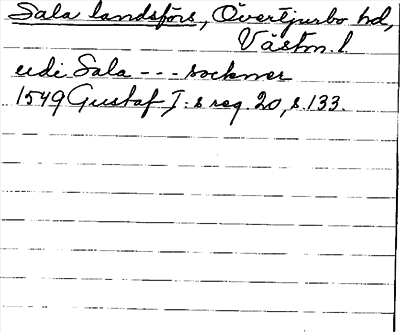 Sala landsförs, Övertjurbo hd,
Västm. l.
udi Sala --- sockner
1549 Gustaf I:s reg. 20, s. 133.